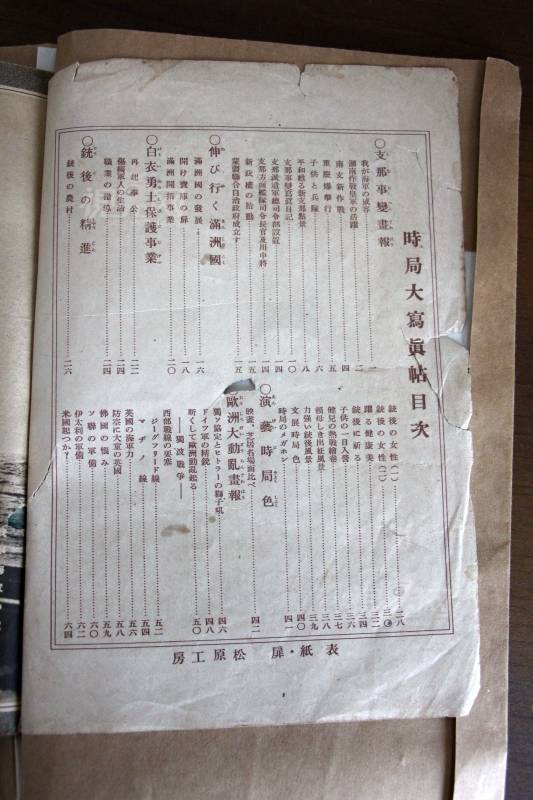 時局大寫眞帖目次
〇支那事變畫報
我が海軍の威容……一
湖南作戰皇軍の活躍……二
南支新作戰……四
重慶爆擊行……五
子供と兵隊……六
平和甦る新支那點景……八
支那事變寫眞日記……一〇
支那派遣軍總司令部設置……一四
支那方面艦隊司令長官及川中將……一四
新政權の胎動……一五
蒙疆聯合自治政府成立す……一五
〇伸び行く滿洲國
滿洲國の發展……一六
開け寶庫の扉……一八
滿洲開拓事業……二〇
〇白衣勇士保護事業
再起奉公……二二
傷痍軍人の生活……二四
職業の指導……二四
〇銃後の精進
銃後の農村……二六
銃後の女性(一)……二八
銃後の女性(二)……三〇
躍る健康美……三二
銃後に祈る……三四
子供の一日入營……三六
健兒の熱戰繪卷……三七
賴母しき出征風景……三八
力强い銃後風景……三九
文展時局色……四〇
時局のメガホン……四一
〇演藝時局色
映畫、芝居名場面比べ……四二
歐洲大動亂畫報
獨ソ協定とヒトラーの獅子吼……四六
ドイツ軍の精銳……四八
斯くして歐洲動亂起る……五〇
――獨波戰爭――
西部戰線の要塞
ジーグフリード線……五二
マヂノ線……五四
英國の海軍力……五六
防空に大童の英國……五八
佛國の惱み……五九
ソ聯の軍備……六〇
伊太利の軍備……六二
米國起つか?……六四
表紙・扉 松原工房